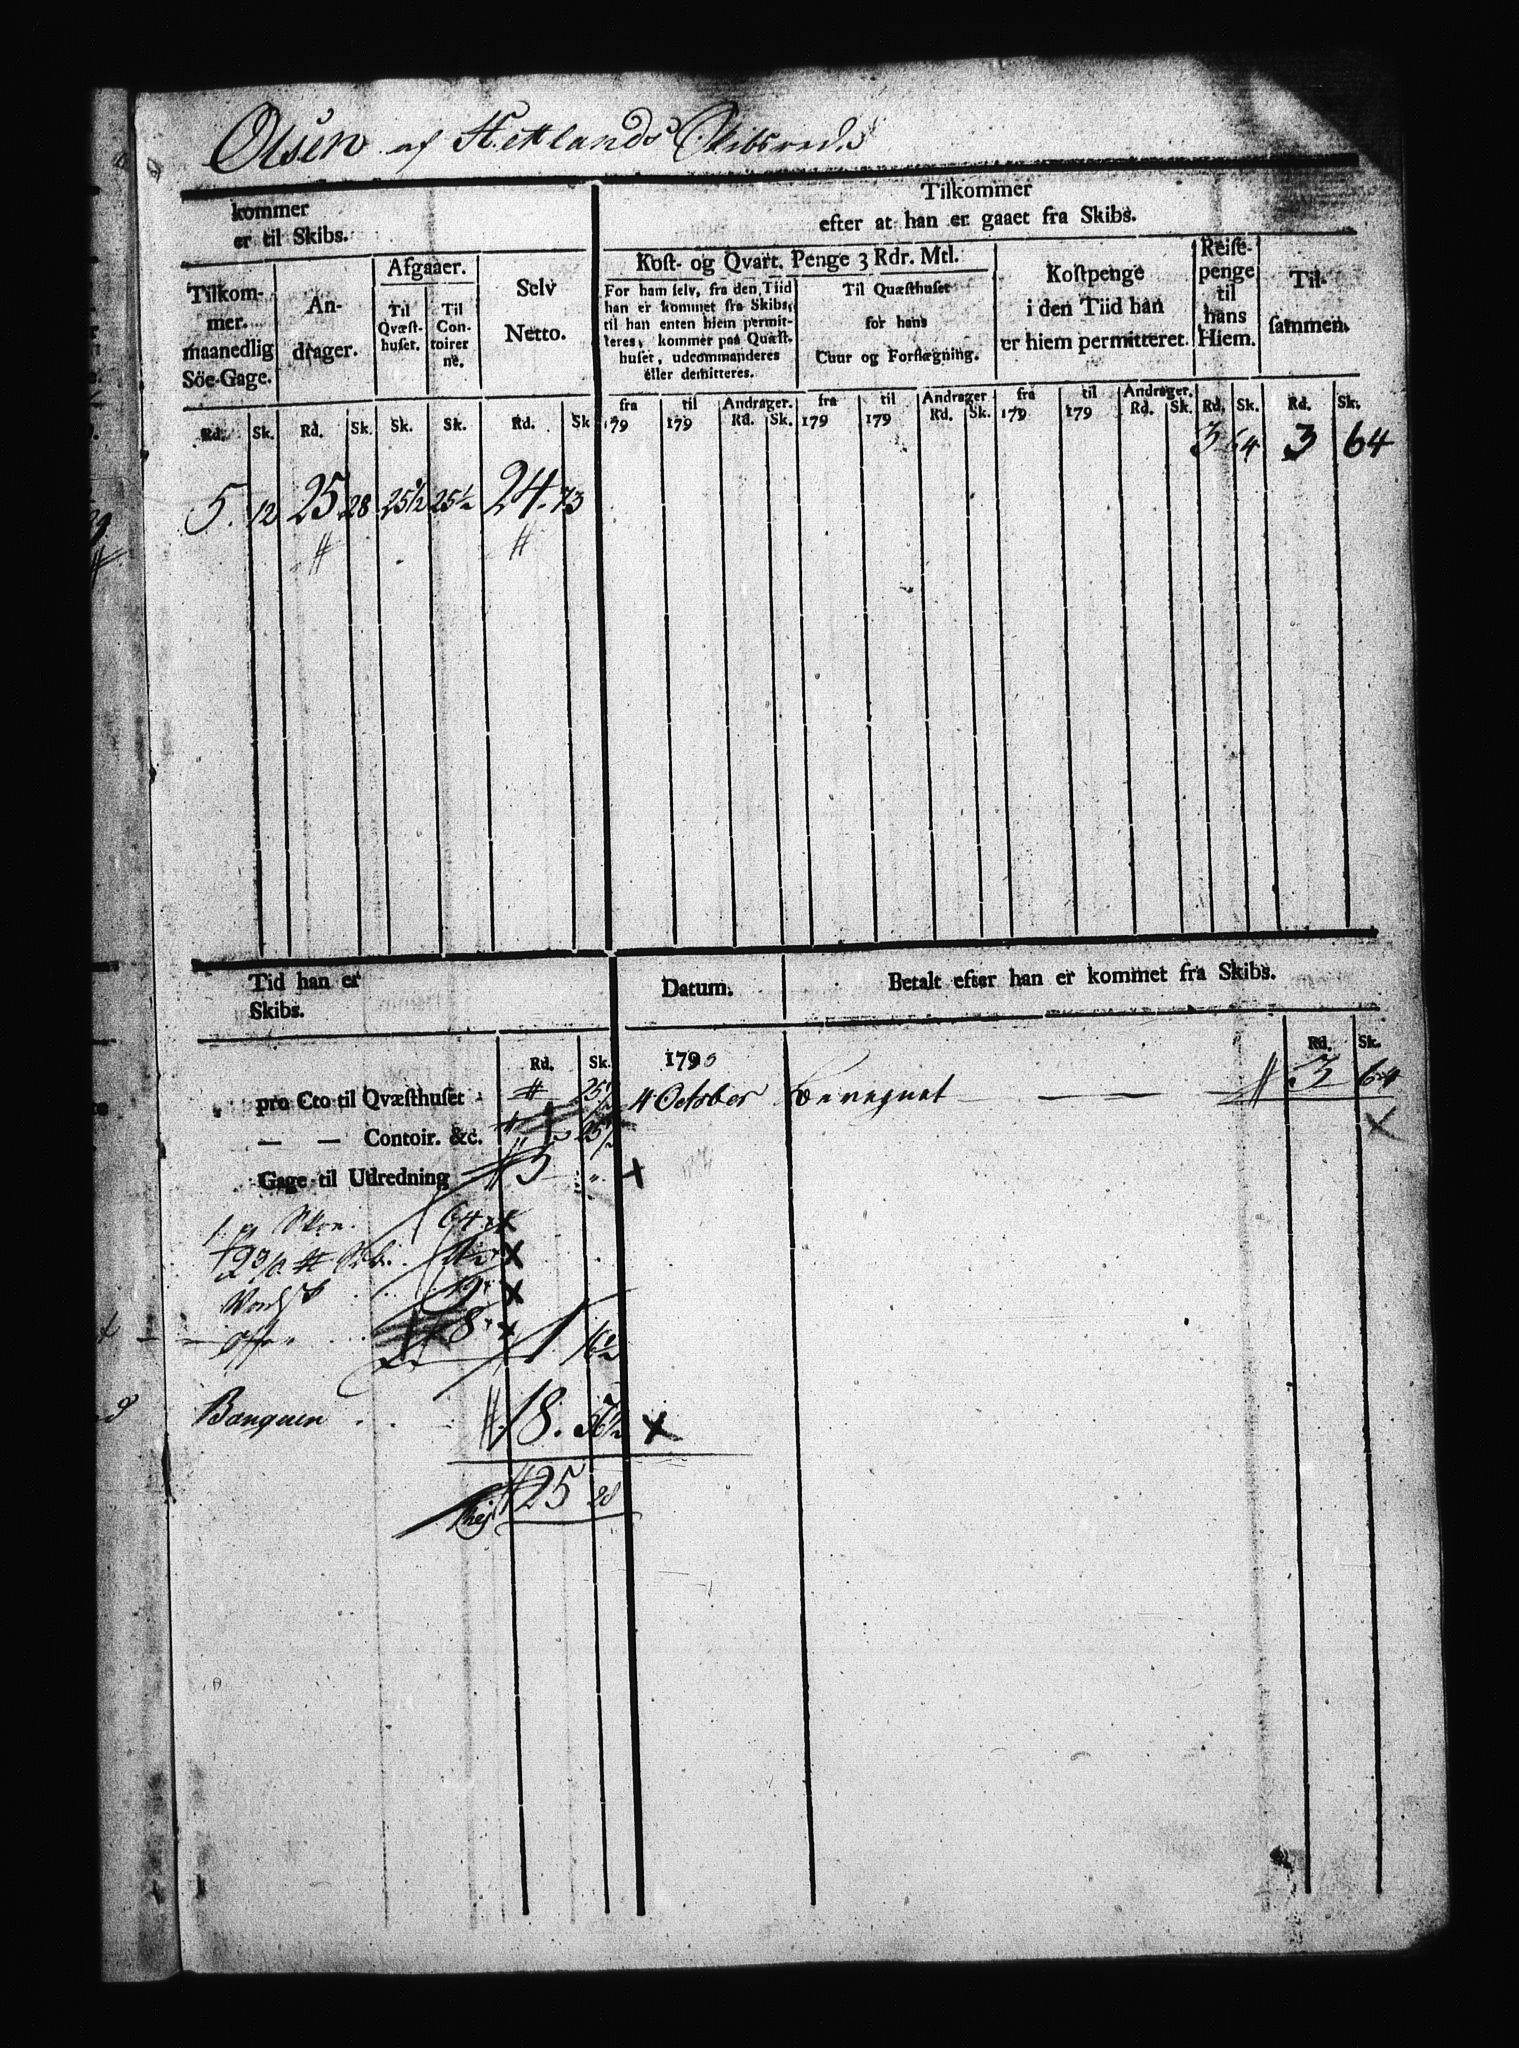 Olsen af Hetlands Skibsreds
kommer
er til Skibs.
Tilkommer
efter at han er gaaet fra Skibs.
Tilkom-
mer.
maanedlig
Söe-Gage.
An-
drager.
Afgaaer.
Til
Qvæst-
huset.
Til
Con-
toirer
ne.
Selv
Netto.
Kost- og Qvart. Penge 3 Rdr. Mtl.
For ham selv, fra den Tiid
han er kommet fra Skibs,
til han enten hiem permit-
teres, kommer paa Quæst-
huset, udcommanderes
eller demitteres.
Til Quæsthuset
for hans
Cuur og Forflægning.
Kostpenge
i den Tiid han
er hiem permitteret.
Reise-
penge
til
hans
Hiem.
Til-
sammen.
Rd. Sk. Rd. Sk. Sk. Sk. Rd. Sk.
fra 179 til 179 Andrager. Rd. Sk. fra 179 til 179 Andrager Rd. Sk. fra 179 til 179 Andrager. Rd. Sk. Rd. Sk. Rd. Sk.
3 64 3 64
5. 12 25 28 25½ 25½ 24. 73
Tid han er
Skibs.
Datum.
Betalt efter han er kommet fra Skibs.
Rd. Sk. 179 Rd. Sk.
pro Cto til Qvæsthuset 25½
4 October 3 64
— — Contoir. &c. 25½
Gage til Udredning 5
64
8 1 16½
Banquen 18.
25 28